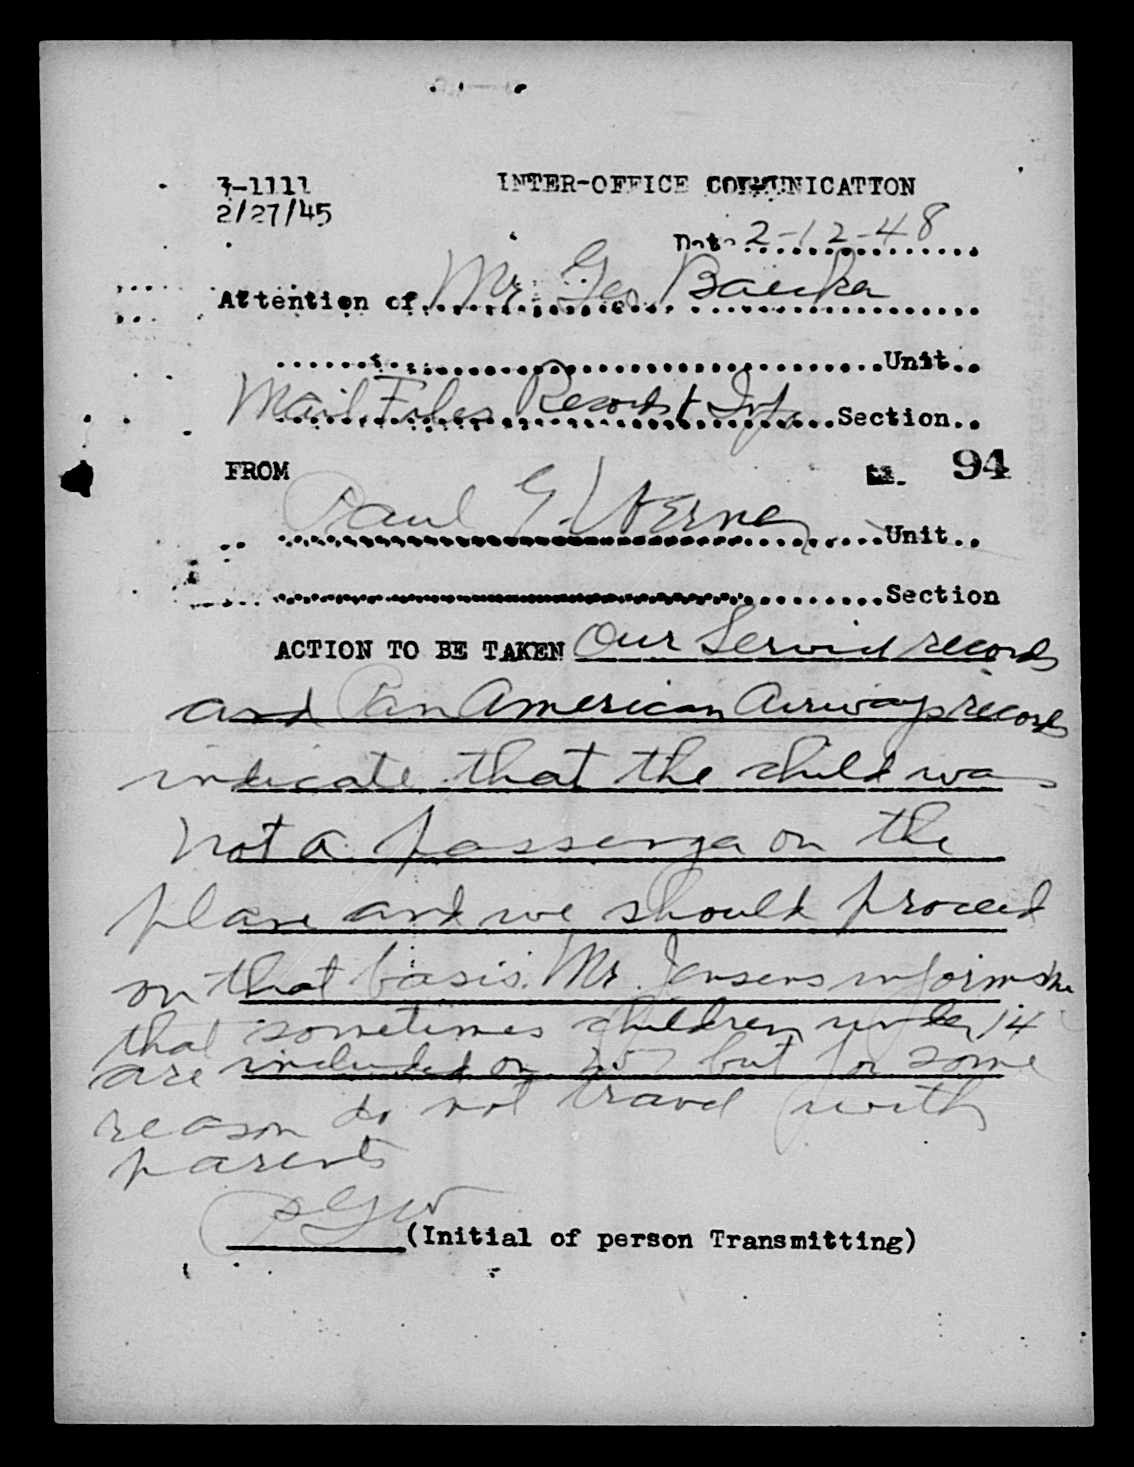 3-1111 INTER-OFFICE COMMUNICATION
2/27/45
Date 2-12-48
Attention of Mr. Geo Baecker
Unit..
Mail Files Records & Info Section..
FROM 94
Paul G. Werner Unit..
Section
ACTION TO BE TAKEN Our Service records
and Pan American Airways records
indicate that the child was
not a passenger on the
plane and we should proceed
on that basis. Mr. Jensens informs me
that sometimes children under 14
are included on but for some
reason do not travel with
parents
PGW
(Initial of person Transmitting)